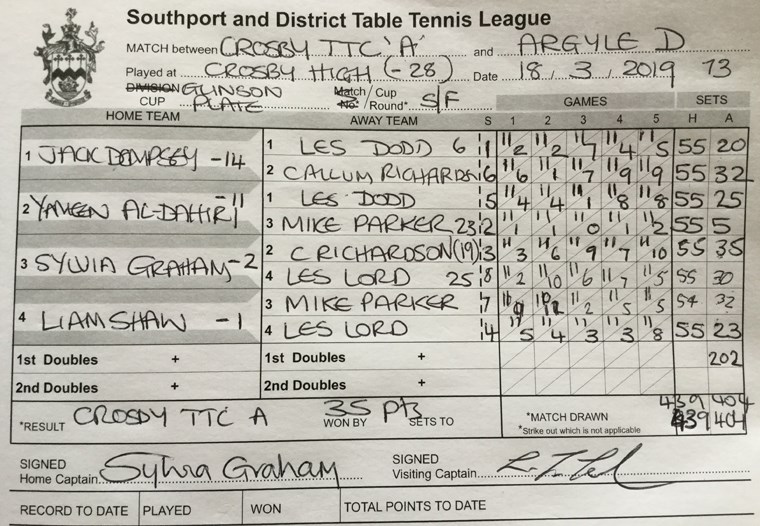 Southport and District Table Tennis League
MATCH between CROSBY TTC 'A' and ARGYLE D
Played at CROSBY HIGH (-28) Date 18 . 3 . 2019 73
DIVISION GLINSON Match/Cup
CUP PLATE No. Round* S/F GAMES SETS
HOME TEAM AWAY TEAM S 1 2 3 4 5 H A
1 JACK DEMPSEY -14
1 LES DODD 6 1 11/2 11/2 11/7 11/4 11/5 55 20
2 CALLUM RICHARDSN 6 11/6 11/1 11/7 11/9 11/9 55 32
2 YAMEEN AL-DAHIR -11
1 LES DODD 5 11/4 11/4 11/1 11/8 11/8 55 25
3 MIKE PARKER 23 2 11/1 11/1 11/0 11/1 11/2 55 5
3 SYLVIA GRAHAM -2
2 C RICHARDSON (19) 3 11/3 11/6 11/9 11/7 11/10 55 35
4 LES LORD 25 8 11/2 11/10 11/6 11/7 11/5 55 30
4 LIAM SHAW -1
3 MIKE PARKER 7 11/2 11/5 11/5 54 32
4 LES LORD 4 11/5 11/4 11/3 11/3 11/8 55 23
1st Doubles + 1st Doubles + 202
2nd Doubles + 2nd Doubles +
439 404
*RESULT CROSBY TTC A WON BY 35 Pts SETS TO *MATCH DRAWN 439 404
*Strike out which is not applicable
SIGNED
Home Captain Sylvia Graham
SIGNED
Visiting Captain
RECORD TO DATE PLAYED WON TOTAL POINTS TO DATE